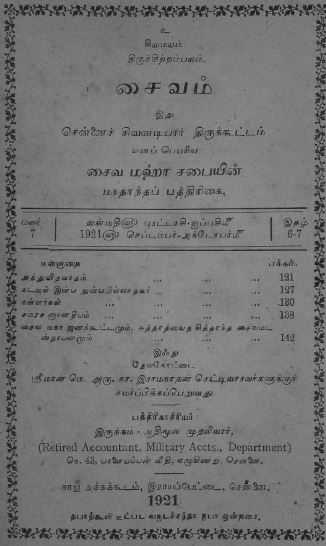 உ
சிவமயம்
திருச்சிற்றம்பலம்.
சைவம்
இது
சென்னைச் சிவனடியார் திருக்கூட்டம்
எனப் பெயரிய
சைவ மஹா சபையின்
மாதாந்தப் பத்திரிகை.
மலர் 7
துன்மதி௵ புரட்டாசி-ஐப்பசி௴
1921௵ செப்டம்பர்-அக்டோபர்௴
இதழ் 6-7
உள்ளுறை பக்கம்.
அத்துவிதவாதம் ... ... ... 121
கடவுள் இன்ப துன்பமில்லாதவர் ... ... ... 127
கள்ளர்கள் ... ... ... ... 130
சமரச ஞானதீபம் ... ... ... 138
சைவ மகா ஜனக்கூட்டமும், சுத்தாத்வைத சித்தாந்த சைவமட
ஸ்தாபனமும் ... ... ... 142
இஃது
தேவகோட்டை
ஸ்ரீமான் மெ. அரு. நா. இராமநாதன் செட்டியாரவர்களுக்குச்
சமர்ப்பிக்கப்பெறுவது.
பத்திராசிரியர் :
இருக்கம்-ஆதிமூல முதலியார்,
(Retired Accountant, Military Accts., Department)
செ. 43, வீதி, எழுகிணறு, சென்னை.
சாது அச்சுக்கூடம், இராயப்பேட்டை, சென்னை.
1921.
தபாற்கூலி உட்பட வருடச்சந்தா ரூபா ஒன்றரை.